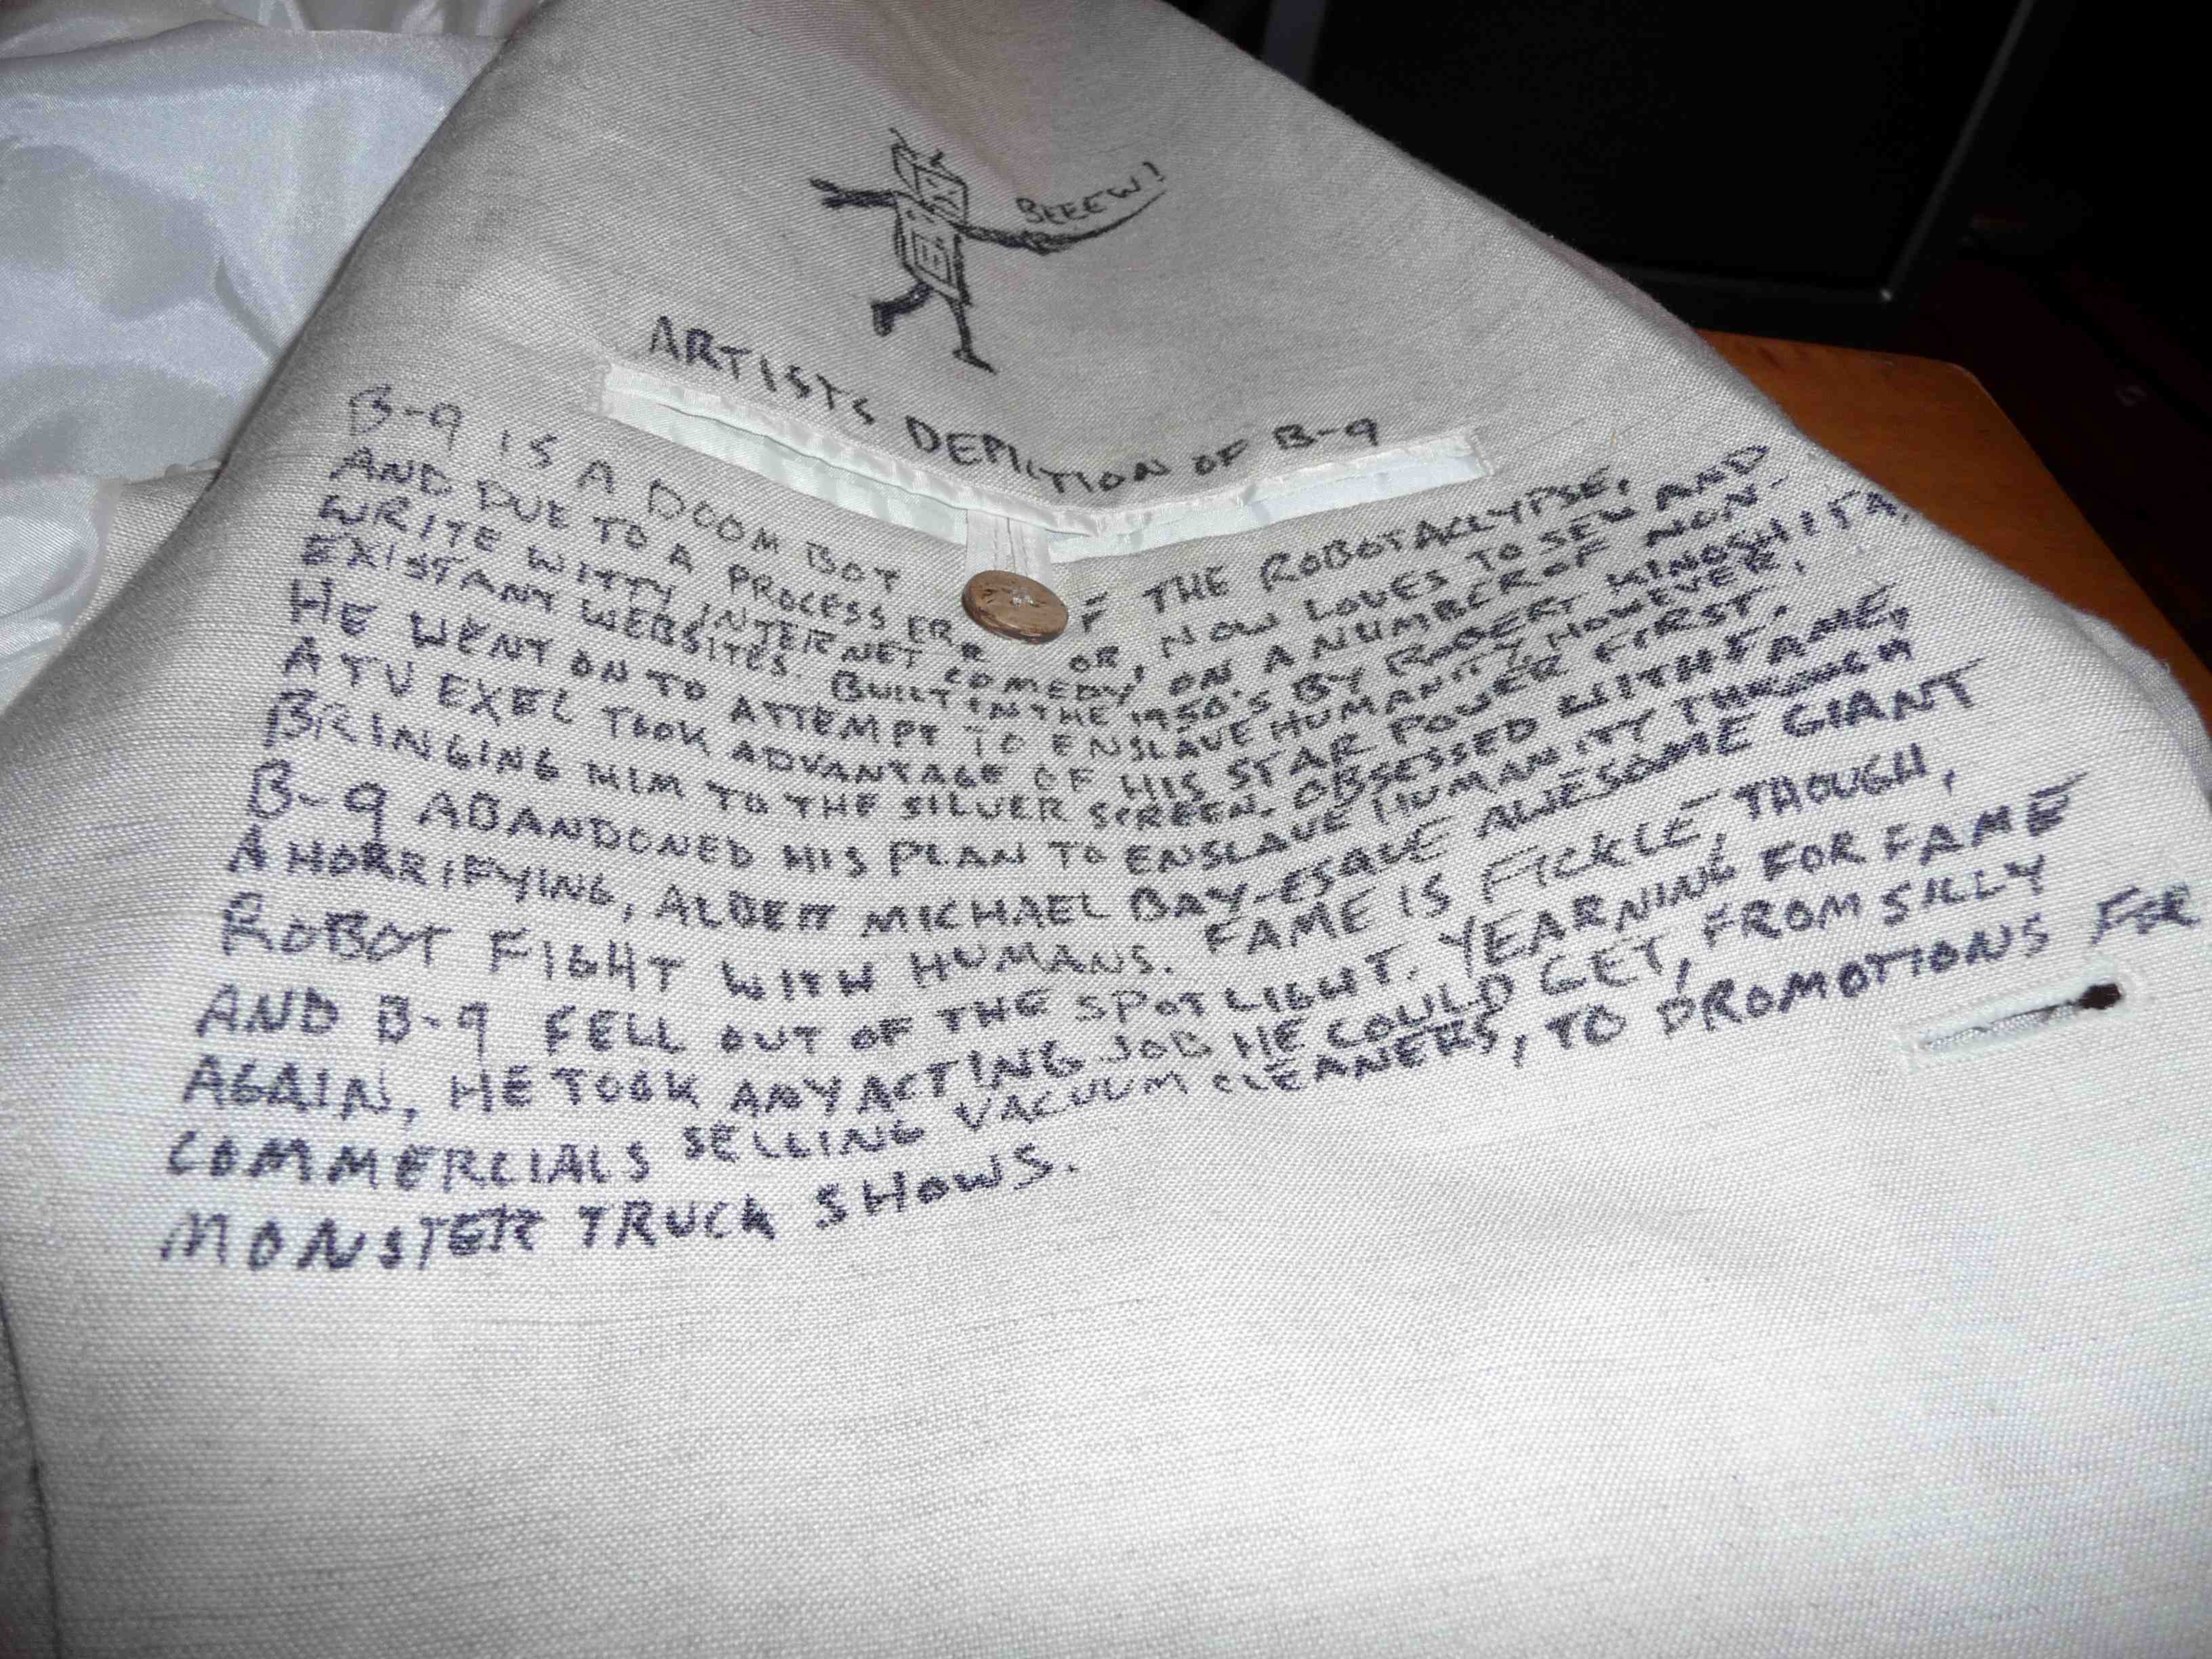 BEEEW!
ARTISTS DEPICTION OF B-9
B-9 IS A DOOM BOT F THE ROBOTACLYPSE,
AND DUE TO A PROCESS ERR OR, NOW LOVES TO SEW AND
WRITE WITTY INTERNET COMEDY, ON A NUMBER OF NON-
EXISTANT WEBSITES. BUILT IN THE 1950'S BY ROBERT KINOSHITA,
HE WENT ON TO ATTEMPT TO ENSLAVE HUMANITY, HOWEVER,
A TV EXEC TOOK ADVANTAGE OF HIS STAR POWER FIRST.
BRINGING HIM TO THE SILVER SCREEN. OBSESSED WITH FAME,
B-9 ABANDONED HIS PLAN TO ENSLAVE HUMANITY THROUGH
A HORRIFYING, ALBEIT MICHAEL BAY-ESQUE AWESOME GIANT
ROBOT FIGHT WITH HUMANS. FAME IS FICKLE, THOUGH,
AND B-9 FELL OUT OF THE SPOTLIGHT. YEARNING FOR FAME
AGAIN, HE TOOK ANY ACTING JOB HE COULD GET, FROM SILLY
COMMERCIALS SELLING VACUUM CLEANERS, TO PROMOTIONS FOR
MONSTER TRUCK SHOWS.